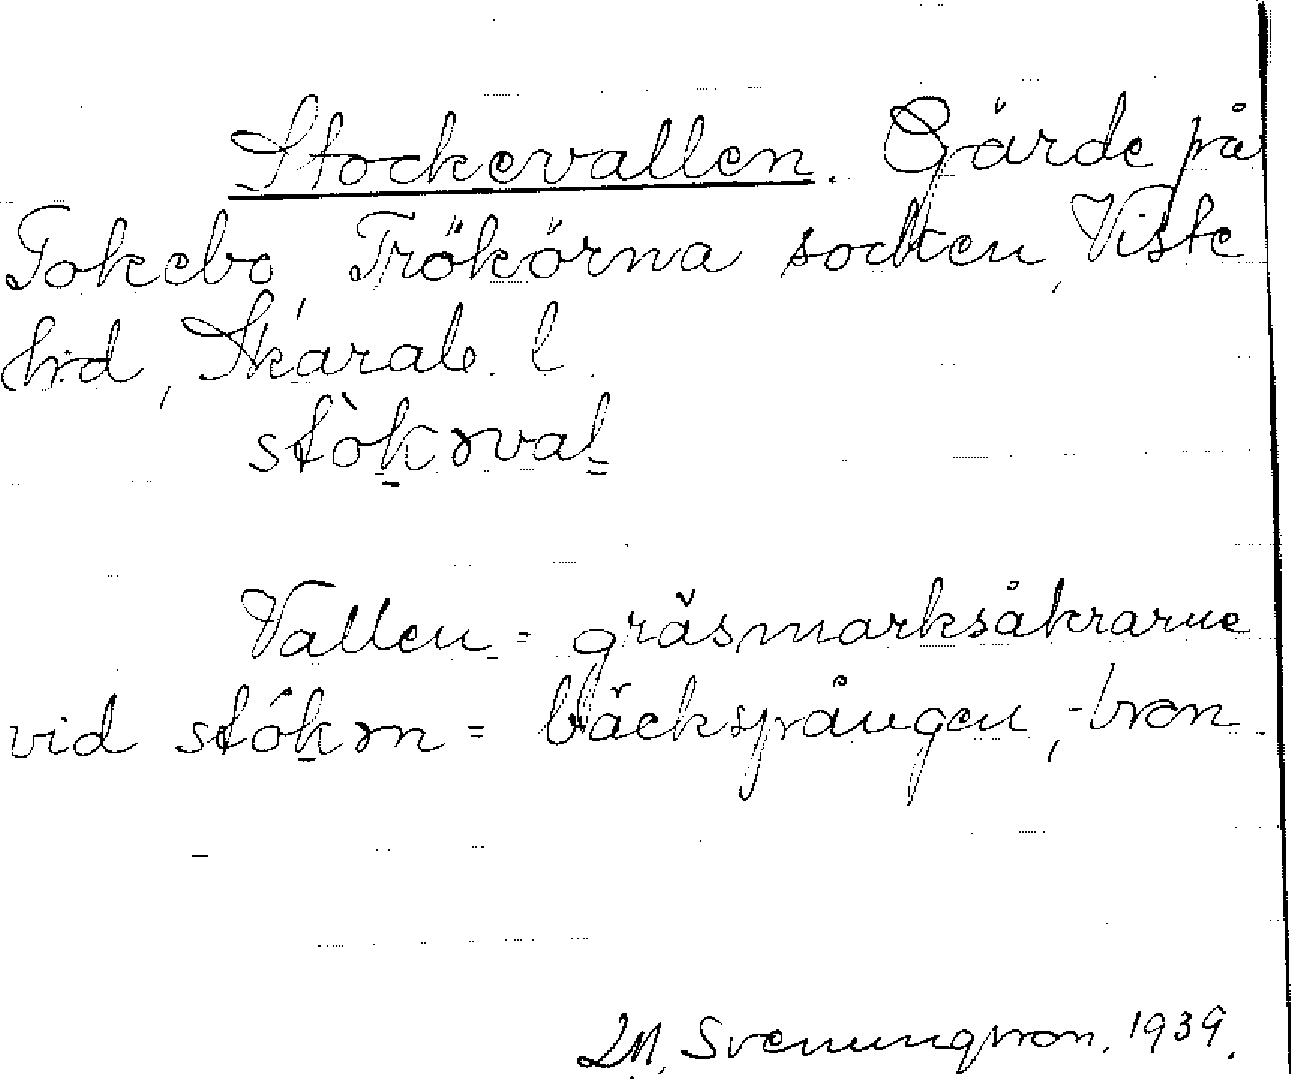 Stockevallen. Gärde på
Tokebo, Trökörna socken, Viste
hrd, Skarab. l.
stòkɘval
Vallen = gräsmarksåkrarne
vid stókɘn = bäckspången, -bron.
M. Svenungsson. 1939.